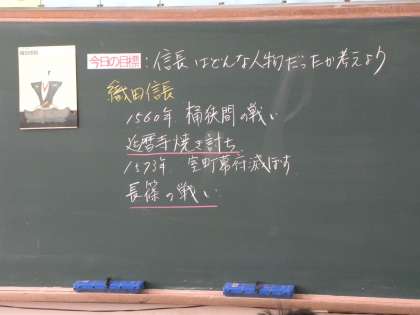 今日の目標:信長はどんな人物だったか考えよう
織田信長
1560年 桶狭間の戦い
延暦寺焼き討ち
1573年 室町幕府滅ぼす
長篠の戦い